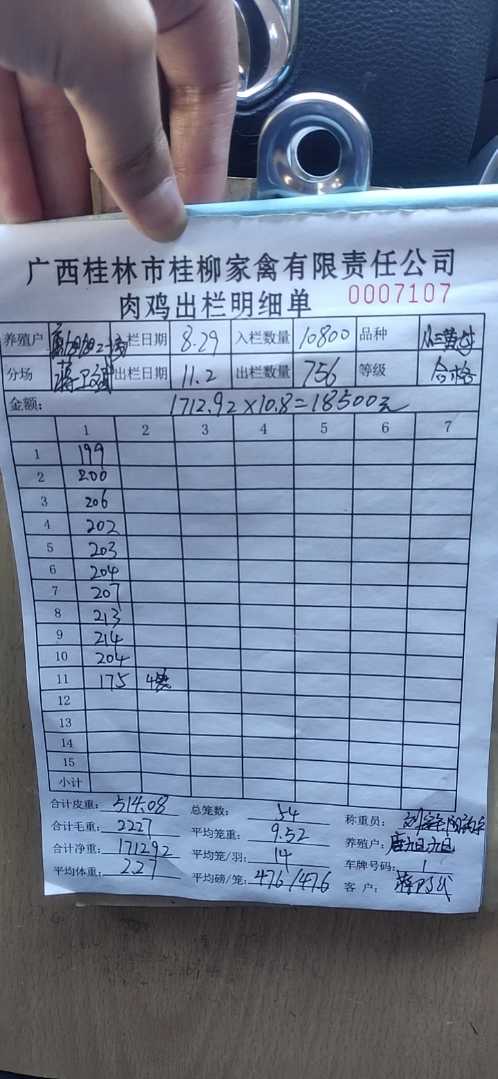 广西桂林市桂柳家禽有限责任公司
肉鸡出栏明细单 0007107
养殖户 入栏日期 8.29 入栏数量 10800 品种
分场 出栏日期 11.2 出栏数量 756 等级 合格
金额: 1712.92×10.8=18500元
1 2 3 4 5 6 7
1 199
2 200
3 206
4 202
5 203
6 204
7 207
8 213
9 214
10 204
11 175 4笼
12
13
14
15
小计
合计皮重: 514.08 总笼数: 54 称重员:
合计毛重: 2227 平均笼重: 9.52 养殖户:
合计净重: 171292 平均笼/羽: 14 车牌号码: 1
平均体重: 2.27 平均磅/笼: 476/476 客户: